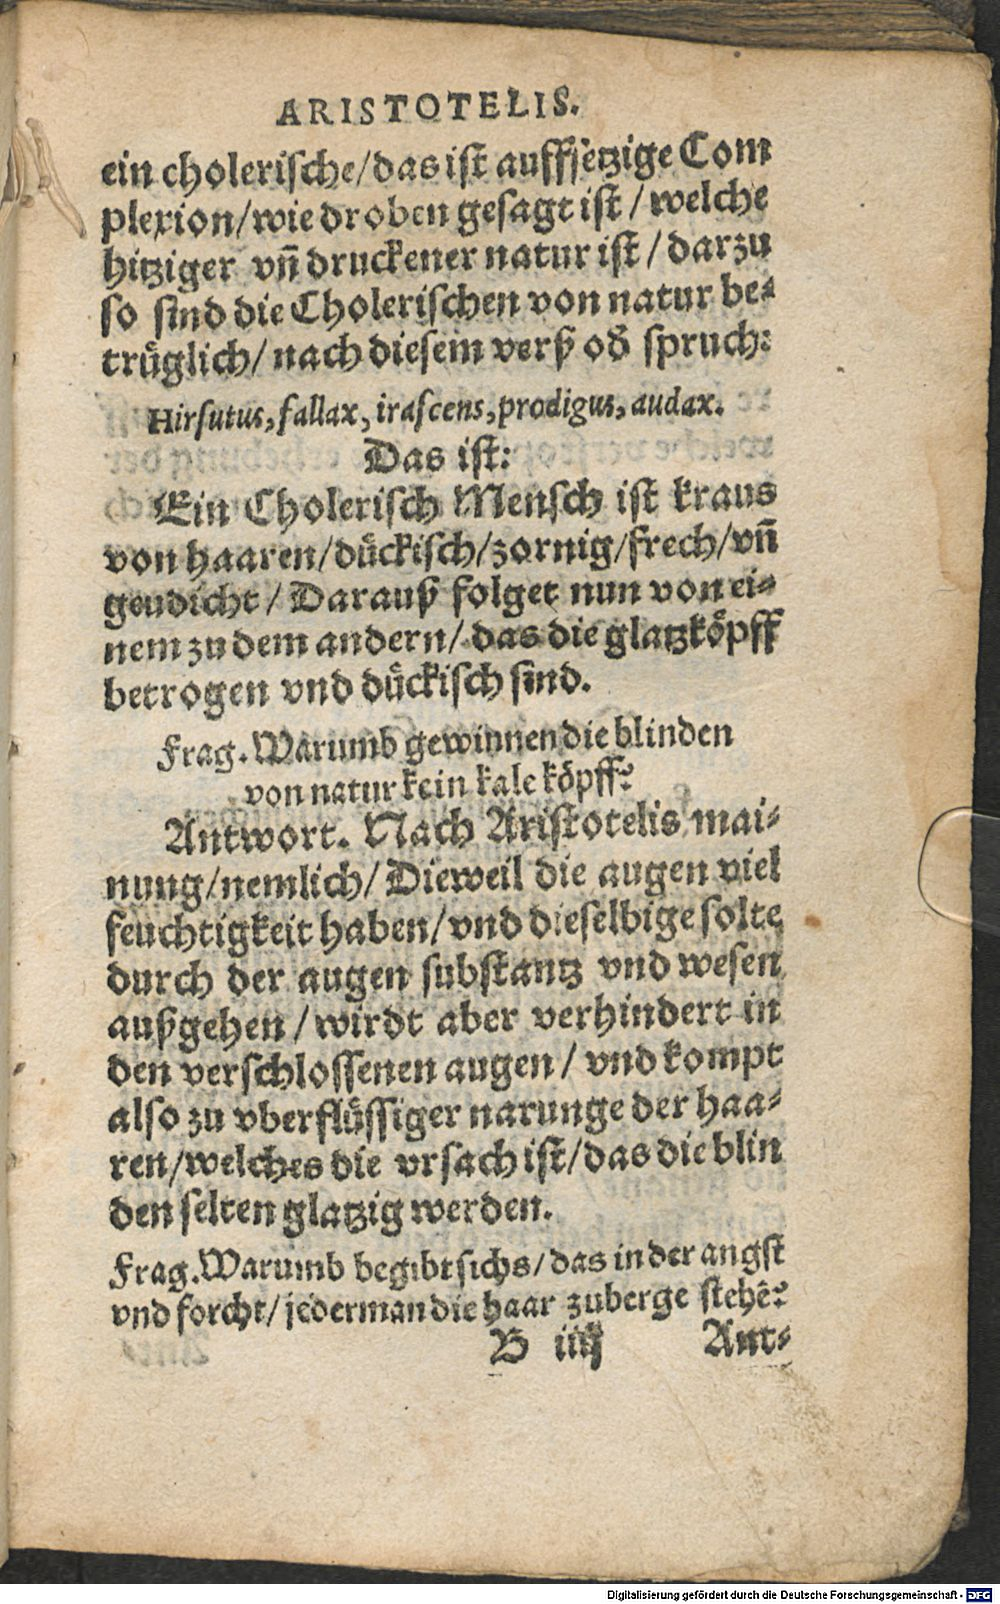 ARISTOTELIS.
ein cholerische/das ist auffsetzige Com
plexion/wie droben gesagt ist/welche
hitziger vñ druckener natur ist/darzu
so sind die Cholerischen von natur be⸗
trüglich/nach diesem verß oď spruch:
Hirsutus, fallax, irascens, prodigus, audax.
Das ist:
Ein Cholerisch Mensch ist kraus
von haaren/dückisch/zornig/frech/vñ
geudicht/Darauß folget nun von ei⸗
nem zu dem andern/das die glatzköpff
betrogen vnd dückisch sind.
Frag. Warumb gewinnen die blinden
von natur kein kale köpff?
Antwort. Nach Aristotelis mai⸗
nung/nemlich/Dieweil die augen viel
feuchtigkeit haben/vnd dieselbige solte
durch der augen substantz vnd wesen
außgehen/wirdt aber verhindert in
den verschlossenen augen/vnd kompt
also zu vberflüssiger narunge der haa⸗
ren/welches die vrsach ist/das die blin
den selten glatzig werden.
Frag. Warumb begibt sichs/das in der angst
vnd forcht/jederman die haar zuberge stehẽ?
B iiij Ant⸗
Digitalisierung gefördert durch die Deutsche Forschungsgemeinschaft - DFG